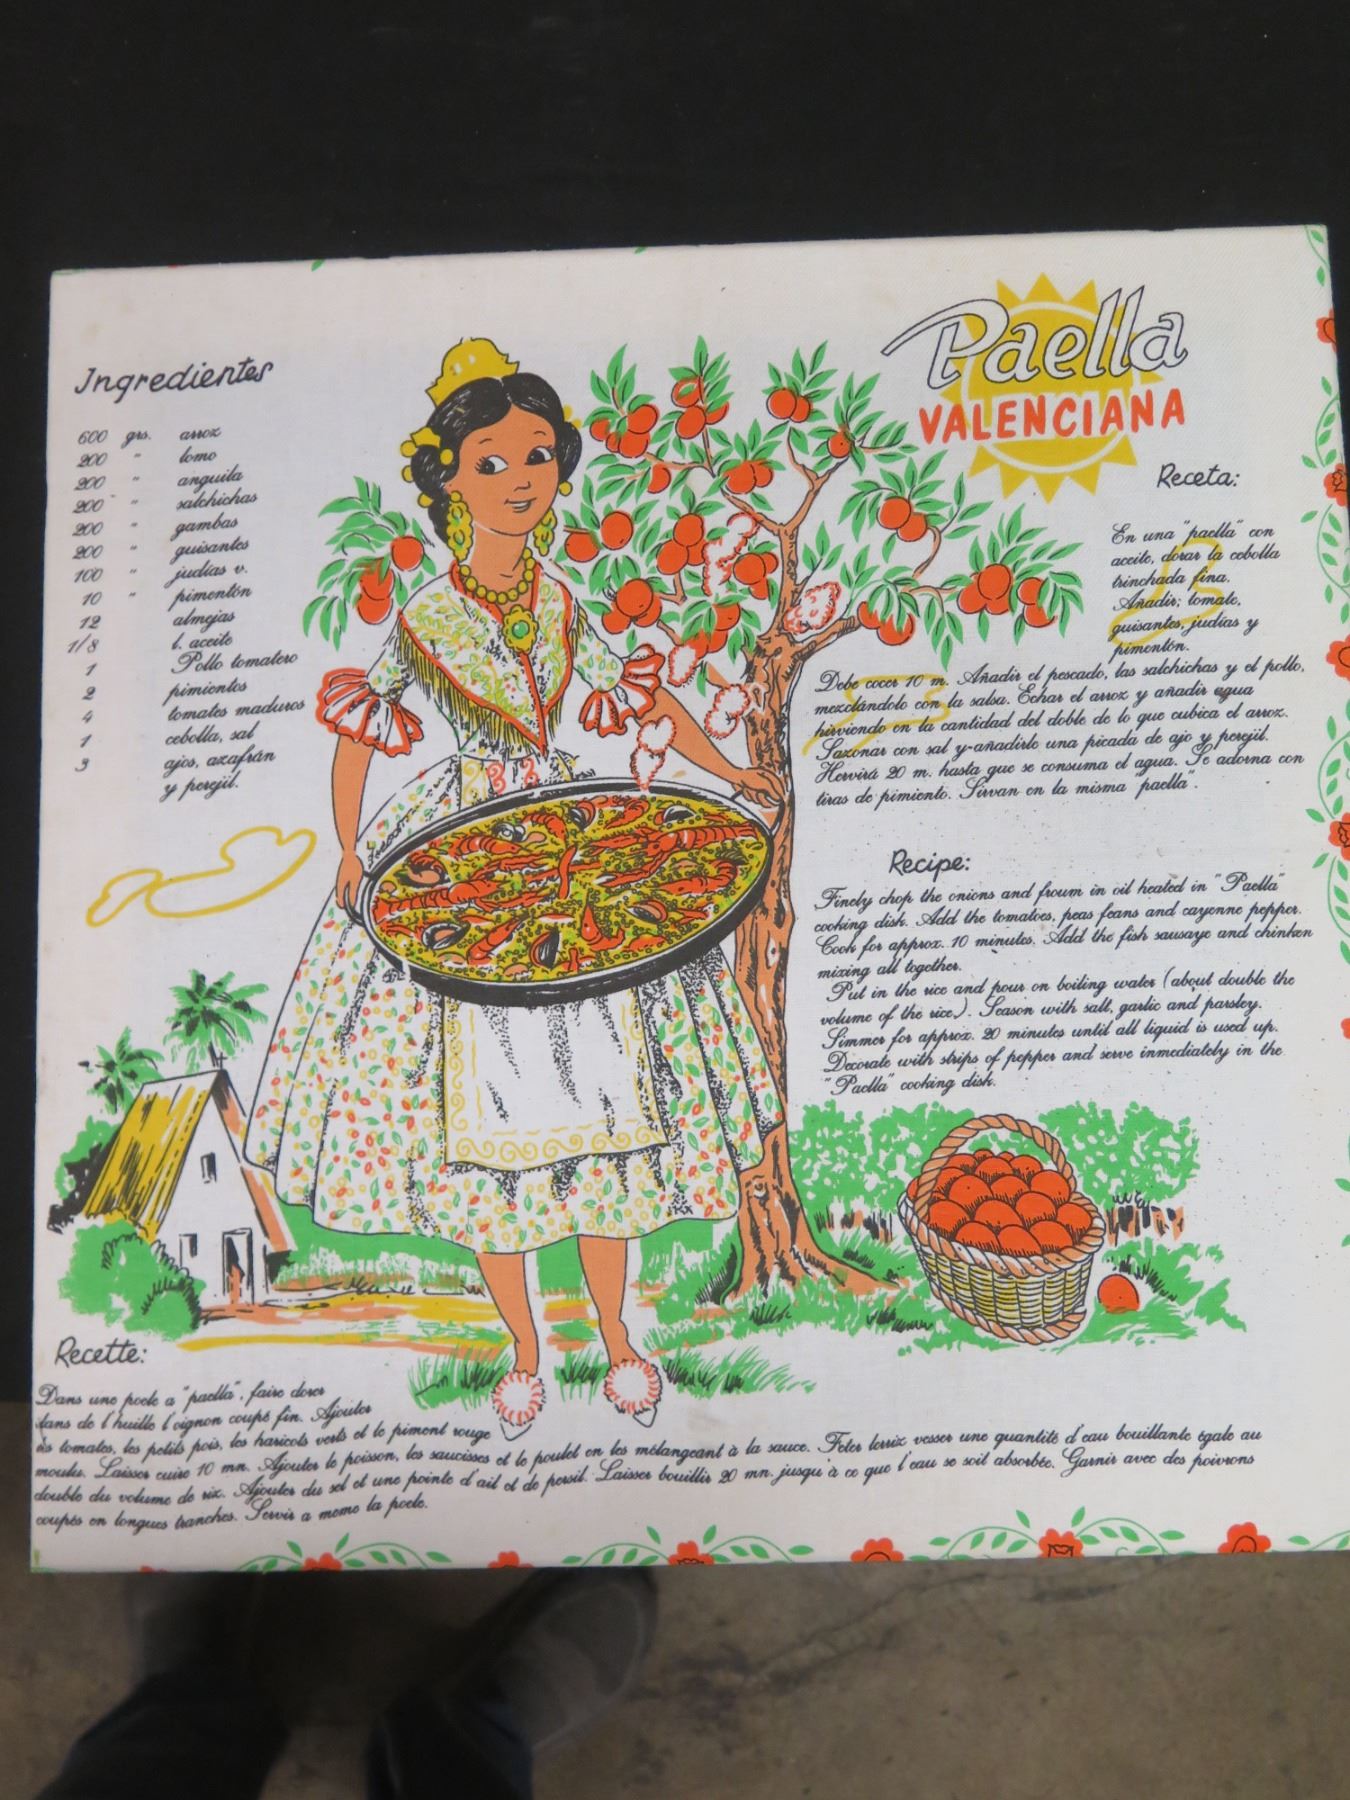 Paella
VALENCIANA
Ingredientes
600 grs. arroz
200 " lomo
200 " anguila
200 " salchichas
200 " gambas
200 " guisantes
100 " judias v.
10 " pimentón
12 almejas
1/8 l. aceite
1 Pollo tomatero
2 pimientos
4 tomates maduros
1 cebolla, sal
3 ajos, azafrán
y perejil.
Receta:
En una "paella" con
aceite, dorar la cebolla
trinchada fina.
Añadir; tomate,
guisantes, judias y
pimentón.
Debe cocer 10 m. Añadir el pescado, las salchichas y el pollo,
mezclándolo con la salsa. Echar el arroz y añadir agua
hirviendo en la cantidad del doble de lo que cubica el arroz.
Sazonar con sal y añadirle una picada de ajo y perejil.
Hervirá 20 m. hasta que se consuma el agua. Se adorna con
tiras de pimiento. Sirvan en la misma "paella".
Recipe:
Finely chop the onions and froum in oil heated in "Paella"
cooking dish. Add the tomatoes, peas feans and cayenne pepper.
Cook for approx. 10 minutes. Add the fish sausaye and chinken
mixing all together.
Put in the rice and pour on boiling water (about double the
volume of the rice). Season with salt, garlic and parsley.
Simmer for approx. 20 minutes until all liquid is used up.
Decorate with strips of pepper and serve inmediately in the
"Paella" cooking dish.
Recette:
Dans une poele a "paella", faire dorer
dans de l'huille l'oignon coupé fin. Ajouter
les tomates, les petits pois, les haricots verts et le piment rouge
moulu. Laisser cuire 10 mn. Ajouter le poisson, les saucisses et le poulet en les mélangeant à la sauce. vesser une quantité d'eau bouillante égale au
double du volume de riz. Ajouter du sel et une pointe d'ail et de persil. Laisser bouillir 20 mn. jusqu'à ce que l'eau se soit absorbée. Garnir avec des poivrons
coupés en longues tranches. Servir a meme la poele.